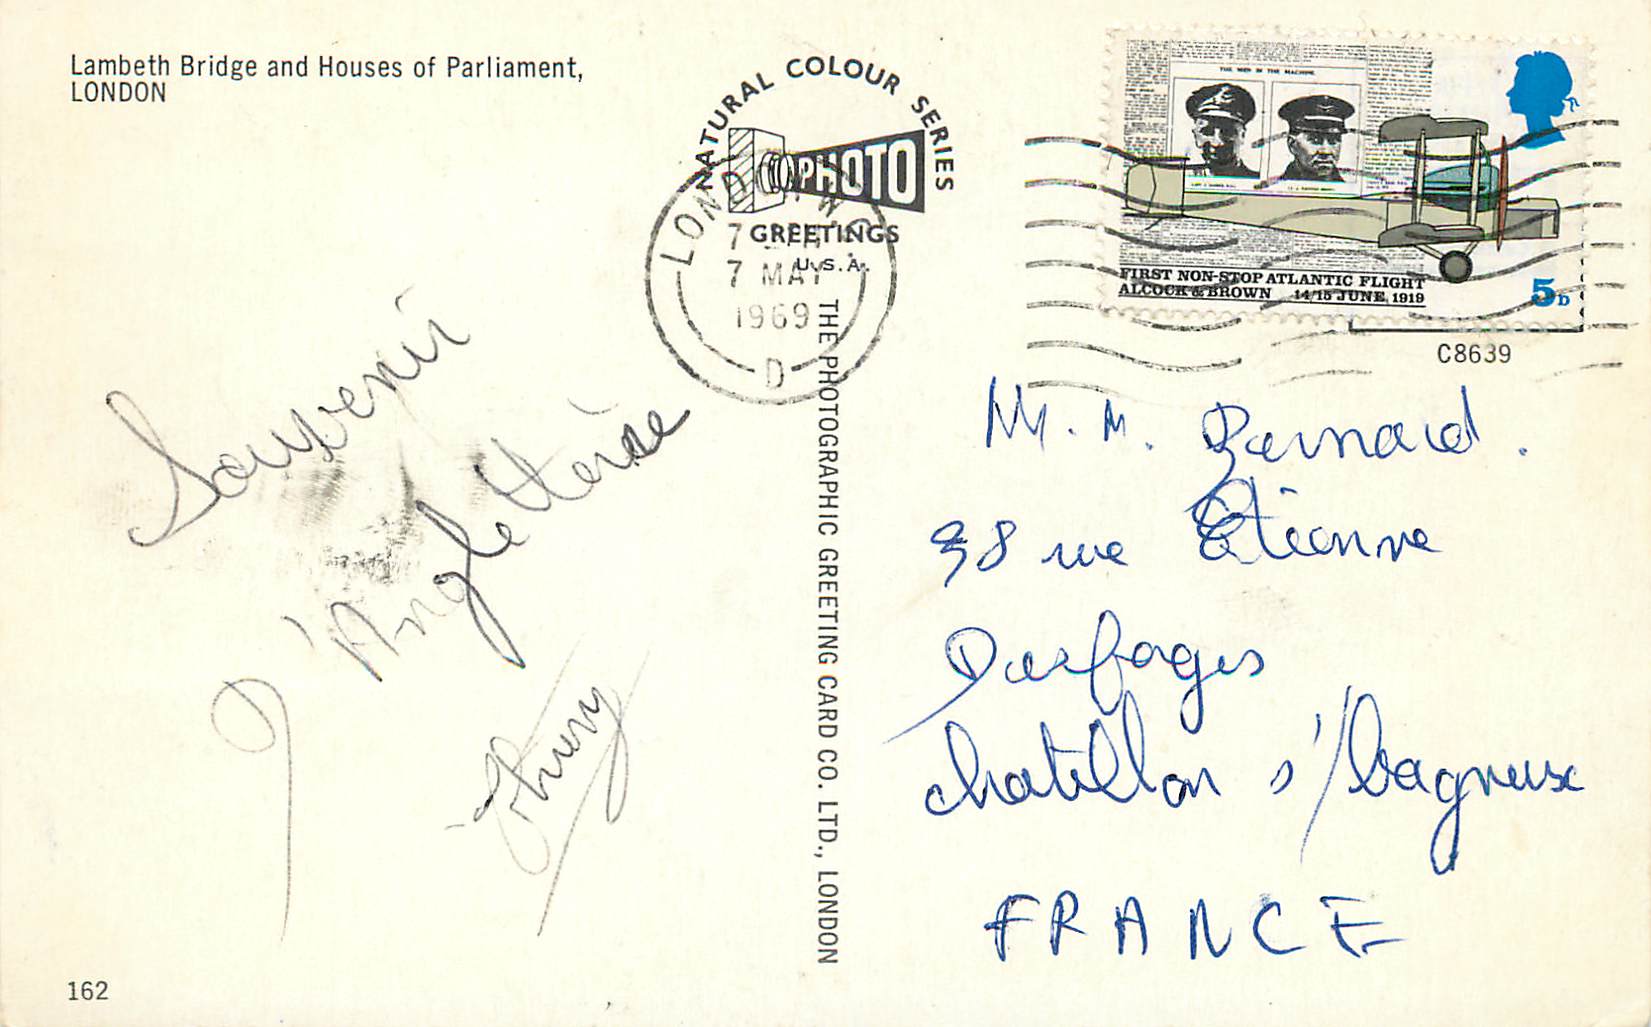 Lambeth Bridge and Houses of Parliament,
LONDON
NATURAL COLOUR SERIES
PHOTO
GREETINGS
U.S.A.
LONDON W
7
7 MAY
1969
D
THE MEN IN THE MACHINE
FIRST NON-STOP ATLANTIC FLIGHT
ALCOCK & BROWN 14/15 JUNE 1919
5D
C8639
Souvenir
d'Angleterre
THE PHOTOGRAPHIC GREETING CARD CO. LTD., LONDON
Mr. M. Bernard.
38 rue Etienne
chatillon s/ bagneux
FRANCE
162